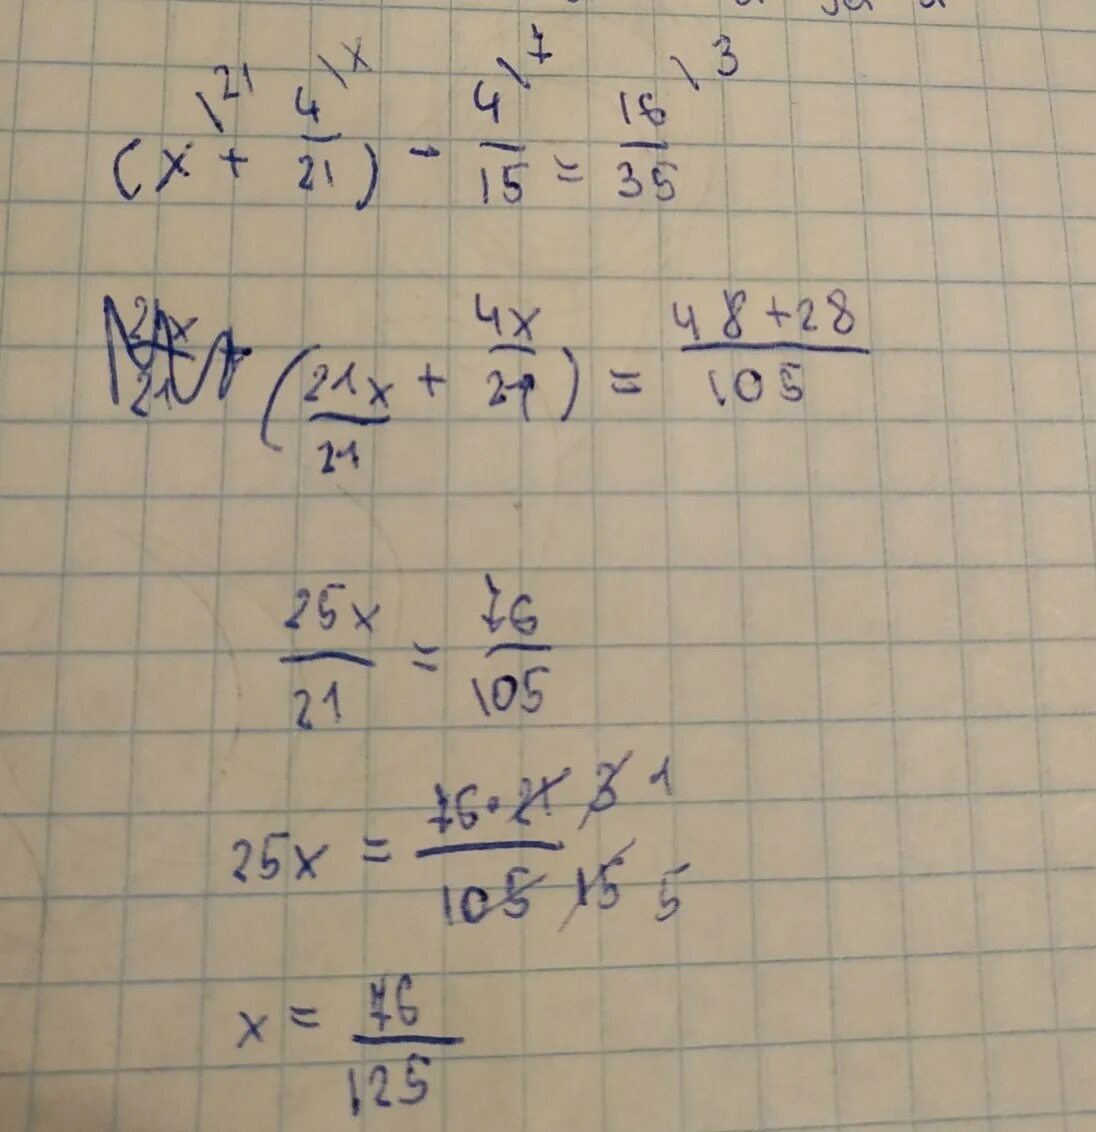 (x\21 + 4/21\x) - 4/15\7 = 16/35\3
(21x/21 + 4x/21) = 48+28/105
25x/21 = 76/105
25x = 76·21 3 1/105 15 5
x = 76/125